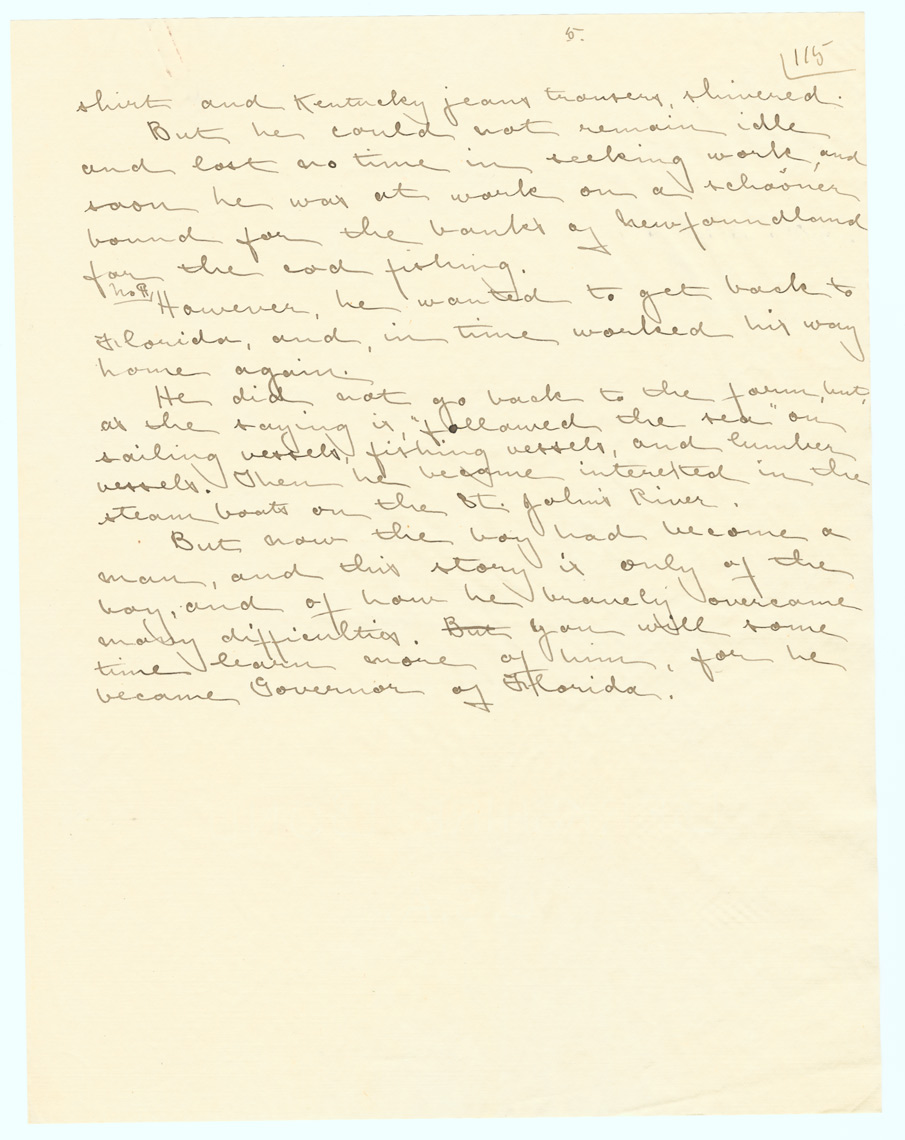 5.
115
shirt and Kentucky jeans trousers, shivered.
But he could not remain idle
and lost no time in seeking work, and
soon he was at work on a schooner
bound for the banks of Newfoundland
for the cod fishing.
No ¶ However, he wanted to get back to
Florida, and, in time worked his way
home again.
He did not go back to the farm, but,
as the saying is, "followed the sea" on
sailing vessels, fishing vessels, and lumber
vessels. Then he became interested in the
steam boats on the St. John's River.
But now the boy had become a
man, and this story is only of the
boy, and of how he bravely overcame
many difficulties. But you will some
time learn more of him, for he
became Governor of Florida.